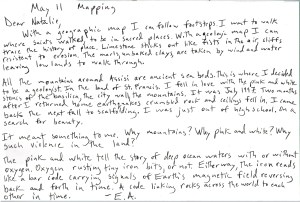 May 11 Mapping
Dear Natalie,
With a geographic map I can follow footsteps. I want to walk
where saints walked, to be in sacred places. With a geologic map I can
trace the history of place. Limestone sticks out like fists in the air, cliffs
resistent to erosion. The marly, unbaked clays are taken by wind and water
leaving low lands to walk through.
All the mountains around Assisi are ancient sea beds. This is where I decided
to be a geologist. In the land of St. Francis. I fell in love with the pink and white
stones of the basilica, the city wall, the mountains. It was July 1997. Two months
after I returned home earthquakes crumbled rock and ceilings fell in. I came
back the next fall to scaffolding. I was just out of high school. On a
search for beauty.
It meant something to me. Why mountains? Why pink and white? Why
such violence in the land?
The pink and white tell the story of deep ocean waters with or without
oxygen. Oxygen rusting tiny iron bits, or not. Either way, the iron reads
like a bar code carrying signals of Earth's magnetic field reversing
back and forth in time. A code linking rocks across the world to each
other in time. -E.A.